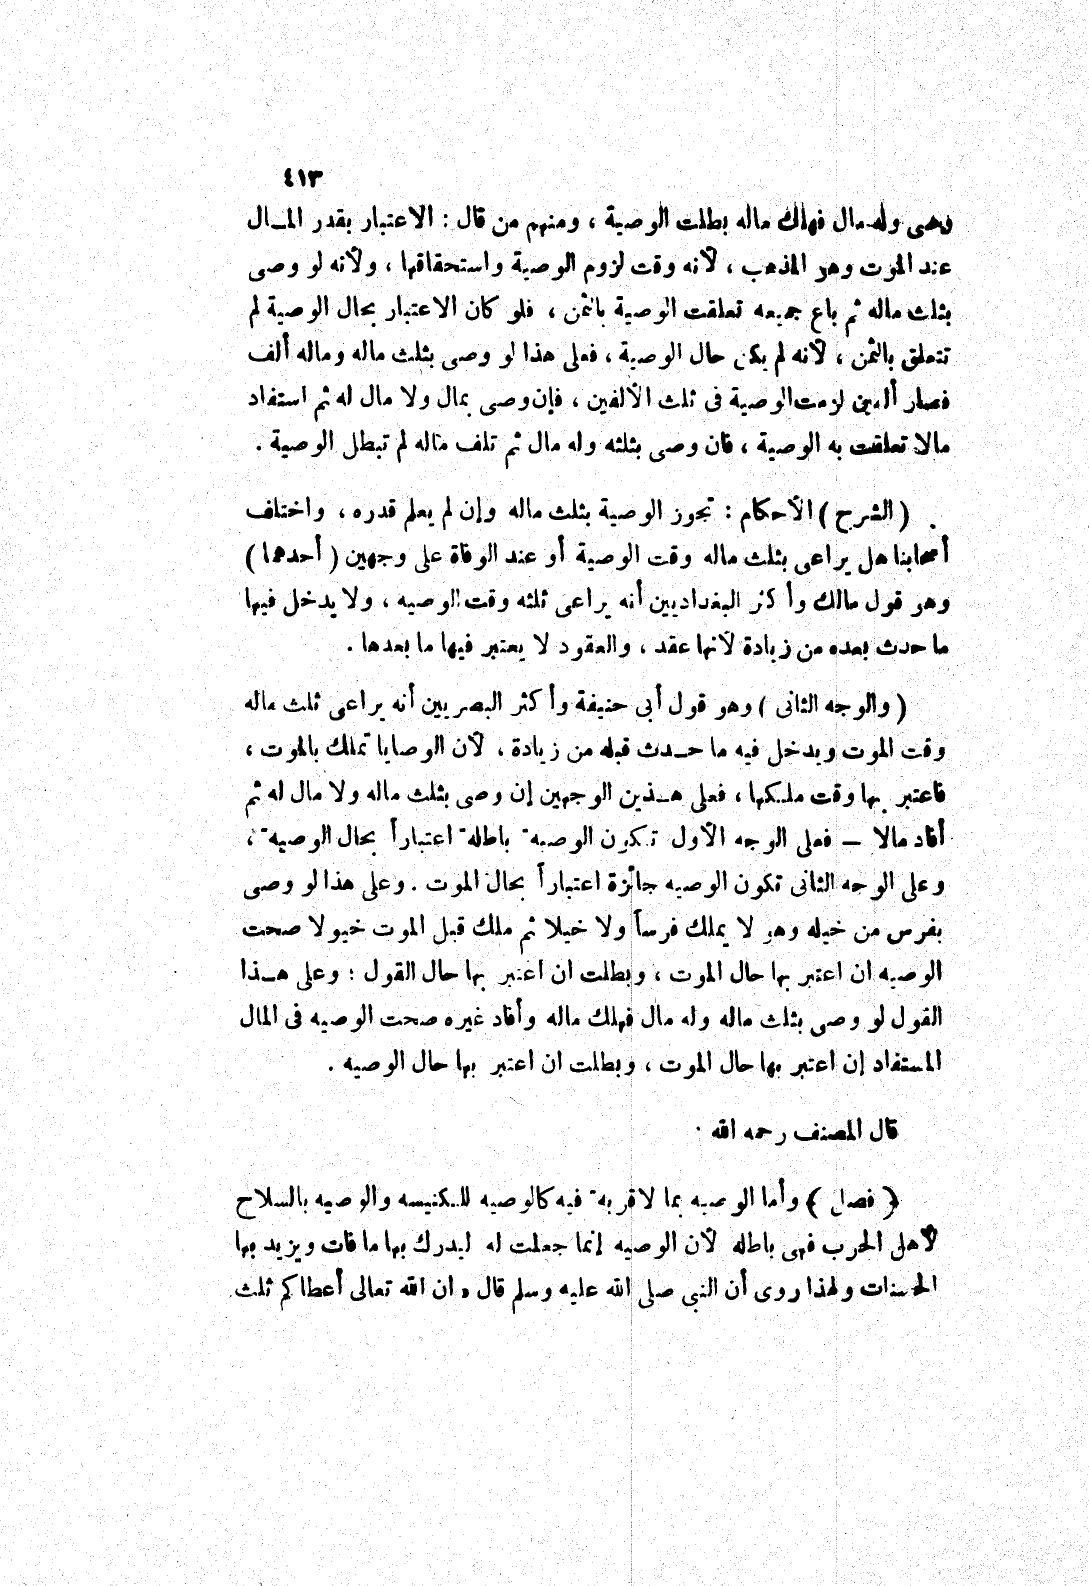 ٤١٣
وصى وله مال فهلك ماله بطلت الوصية ، ومنهم من قال : الاعتبار بقدر المـال
عند الموت وهو المذهب ، لأنه وقت لزوم الوصية واستحقاقها ، ولأنه لو وصى
بثلث ماله ثم باع جميعه تعلقت الوصية بالثمن ، فلو كان الاعتبار بحال الوصية لم
تتعلق بالثمن ، لأنه لم يكن حال الوصية ، فعلى هذا لو وصى بثلث ماله وماله ألف
فصار ألفين لزمت الوصية فى ثلث الألفين ، فإن وصى بمال ولا مال له ثم استفاد
مالا تعلقت به الوصية ، فان وصى بثلثه وله مال ثم تلف ماله لم تبطل الوصية .
( الشرح ) الأحكام : تجوز الوصية بثلث ماله وإن لم يعلم قدره ، واختلف
أصحابنا هل يراعى بثلث ماله وقت الوصية أو عند الوفاة على وجهين ( أحدهما )
وهو قول مالك وأكثر البغداديين أنه يراعى ثلثه وقت الوصيه ، ولا يدخل فيها
ما حدث بعده من زيادة لأنها عقد ، والعقود لا يعتبر فيها ما بعدها .
( والوجه الثانى ) وهو قول أبى حنيفة وأكثر البصريين أنه يراعى ثلث ماله
وقت الموت ويدخل فيه ما حـدث قبله من زيادة ، لأن الوصايا تملك بالموت ،
فاعتبر بها وقت ملكها ، فعلى هـذين الوجهين إن وصى بثلث ماله ولا مال له ثم
أفاد مالا — فعلى الوجه الأول تكون الوصيه باطله اعتبارأ بحال الوصيه ،
وعلى الوجه الثانى تكون الوصيه جائزة اعتبارأ بحال الموت . وعلى هذا لو وصى
بفرس من خيله وهو لا يملك فرسأ ولا خيلا ثم ملك قبل الموت خيولا صحت
الوصيه ان اعتبر بها حال الموت ، وبطلت ان اعتبر بها حال القول ؛ وعلى هـذا
القول لو وصى بثلث ماله وله مال فهلك ماله وأفاد غيره صحت الوصيه فى المال
المستفاد إن اعتبر بها حال الموت ، وبطلت ان اعتبر بها حال الوصيه .
قال المصنف رحمه الله .
﴿ فصل ﴾ وأما الوصيه بما لا قربه فيه كالوصيه للكنيسه والوصيه بالسلاح
لأهل الحرب فهى باطله لأن الوصيه إنما جعلت له ليدرك بها ما فات ويزيد بها
الحسنات ولهذا روى أن النبى صلى الله عليه وسلم قال « ان الله تعالى أعطاكم ثلث